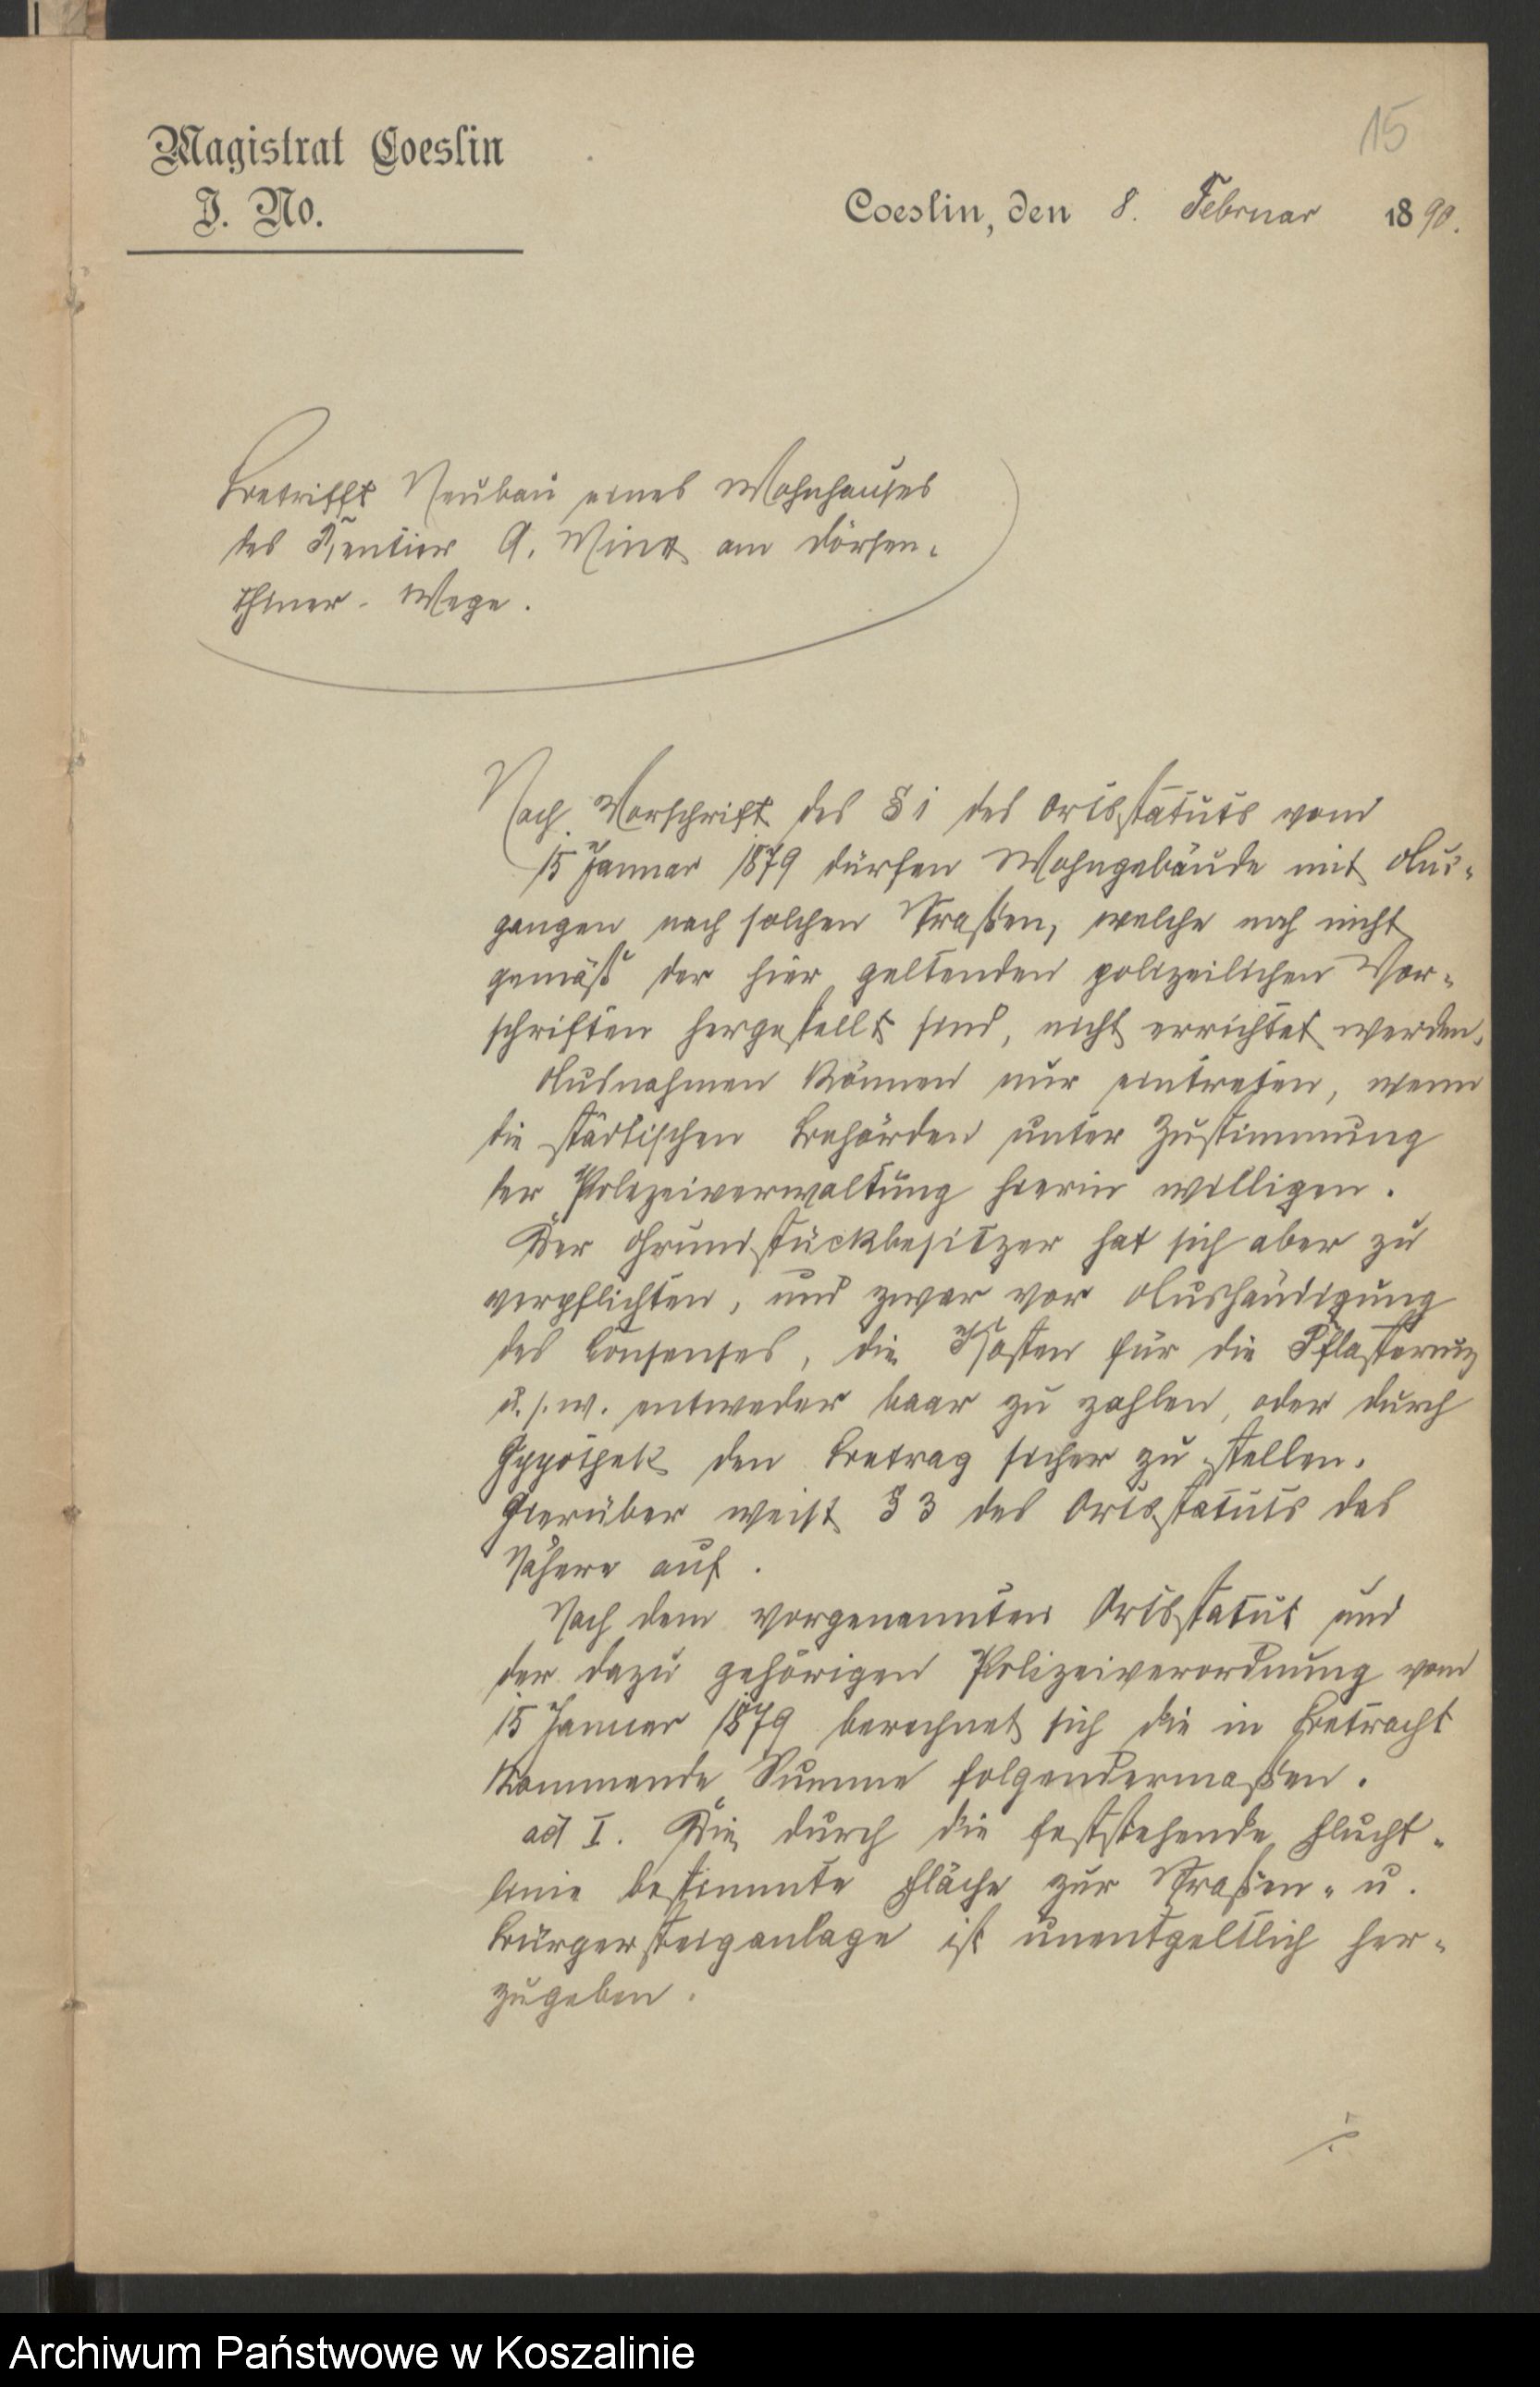 15
Magistrat Coeslin
J. No.
Coeslin, den 8. Februar 1890.
Betrifft Neubau eines Wohnhauses
des Rentier A. am Dörsen-
thiner- Wege.
Nach Vorschrift des § 1 des Ortsstatuts vom
15 Januar 1879 dürfen Wohngebäude mit Aus-
gangen nach solchen Straßen, welche noch nicht
gemäß der hier geltenden polizeilichen Vor-
schriften hergestellt sind, nicht errichtet werden.
Ausnahmen können nur eintreten, wenn
die städtischen Behörden unter Zustimmung
der Polizeiverwaltung hierin willigen.
Der Grundstückbesitzer hat sich aber zu
verpflichten, und zwar vor Aushändigung
des Consenses, die Kosten für die Pflasterung
u. s. w. entweder baar zu zahlen, oder durch
Hypothek den Betrag sicher zu stellen.
Hierüber weist § 3 des Ortsstatuts das
Nähere auf.
Nach dem vorgenannten Ortsstatut und
der dazu gehörigen Polizeiverordnung vom
15 Januar 1879 berechnet sich die in Betracht
kommende Summe folgendermaßen.
ad I. Die durch die feststehende Flucht-
linie bestimmte Fläche zur Straßen- u.
Bürgersteiganlage ist unentgeltlich her-
zugeben.
Archiwum Państwowe w Koszalinie